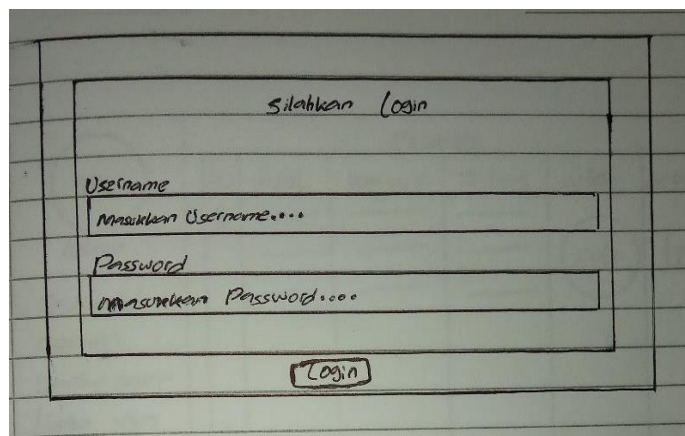 Silahkan Login
Username
Masukkan Username....
Password
Masukkan Password....
Login